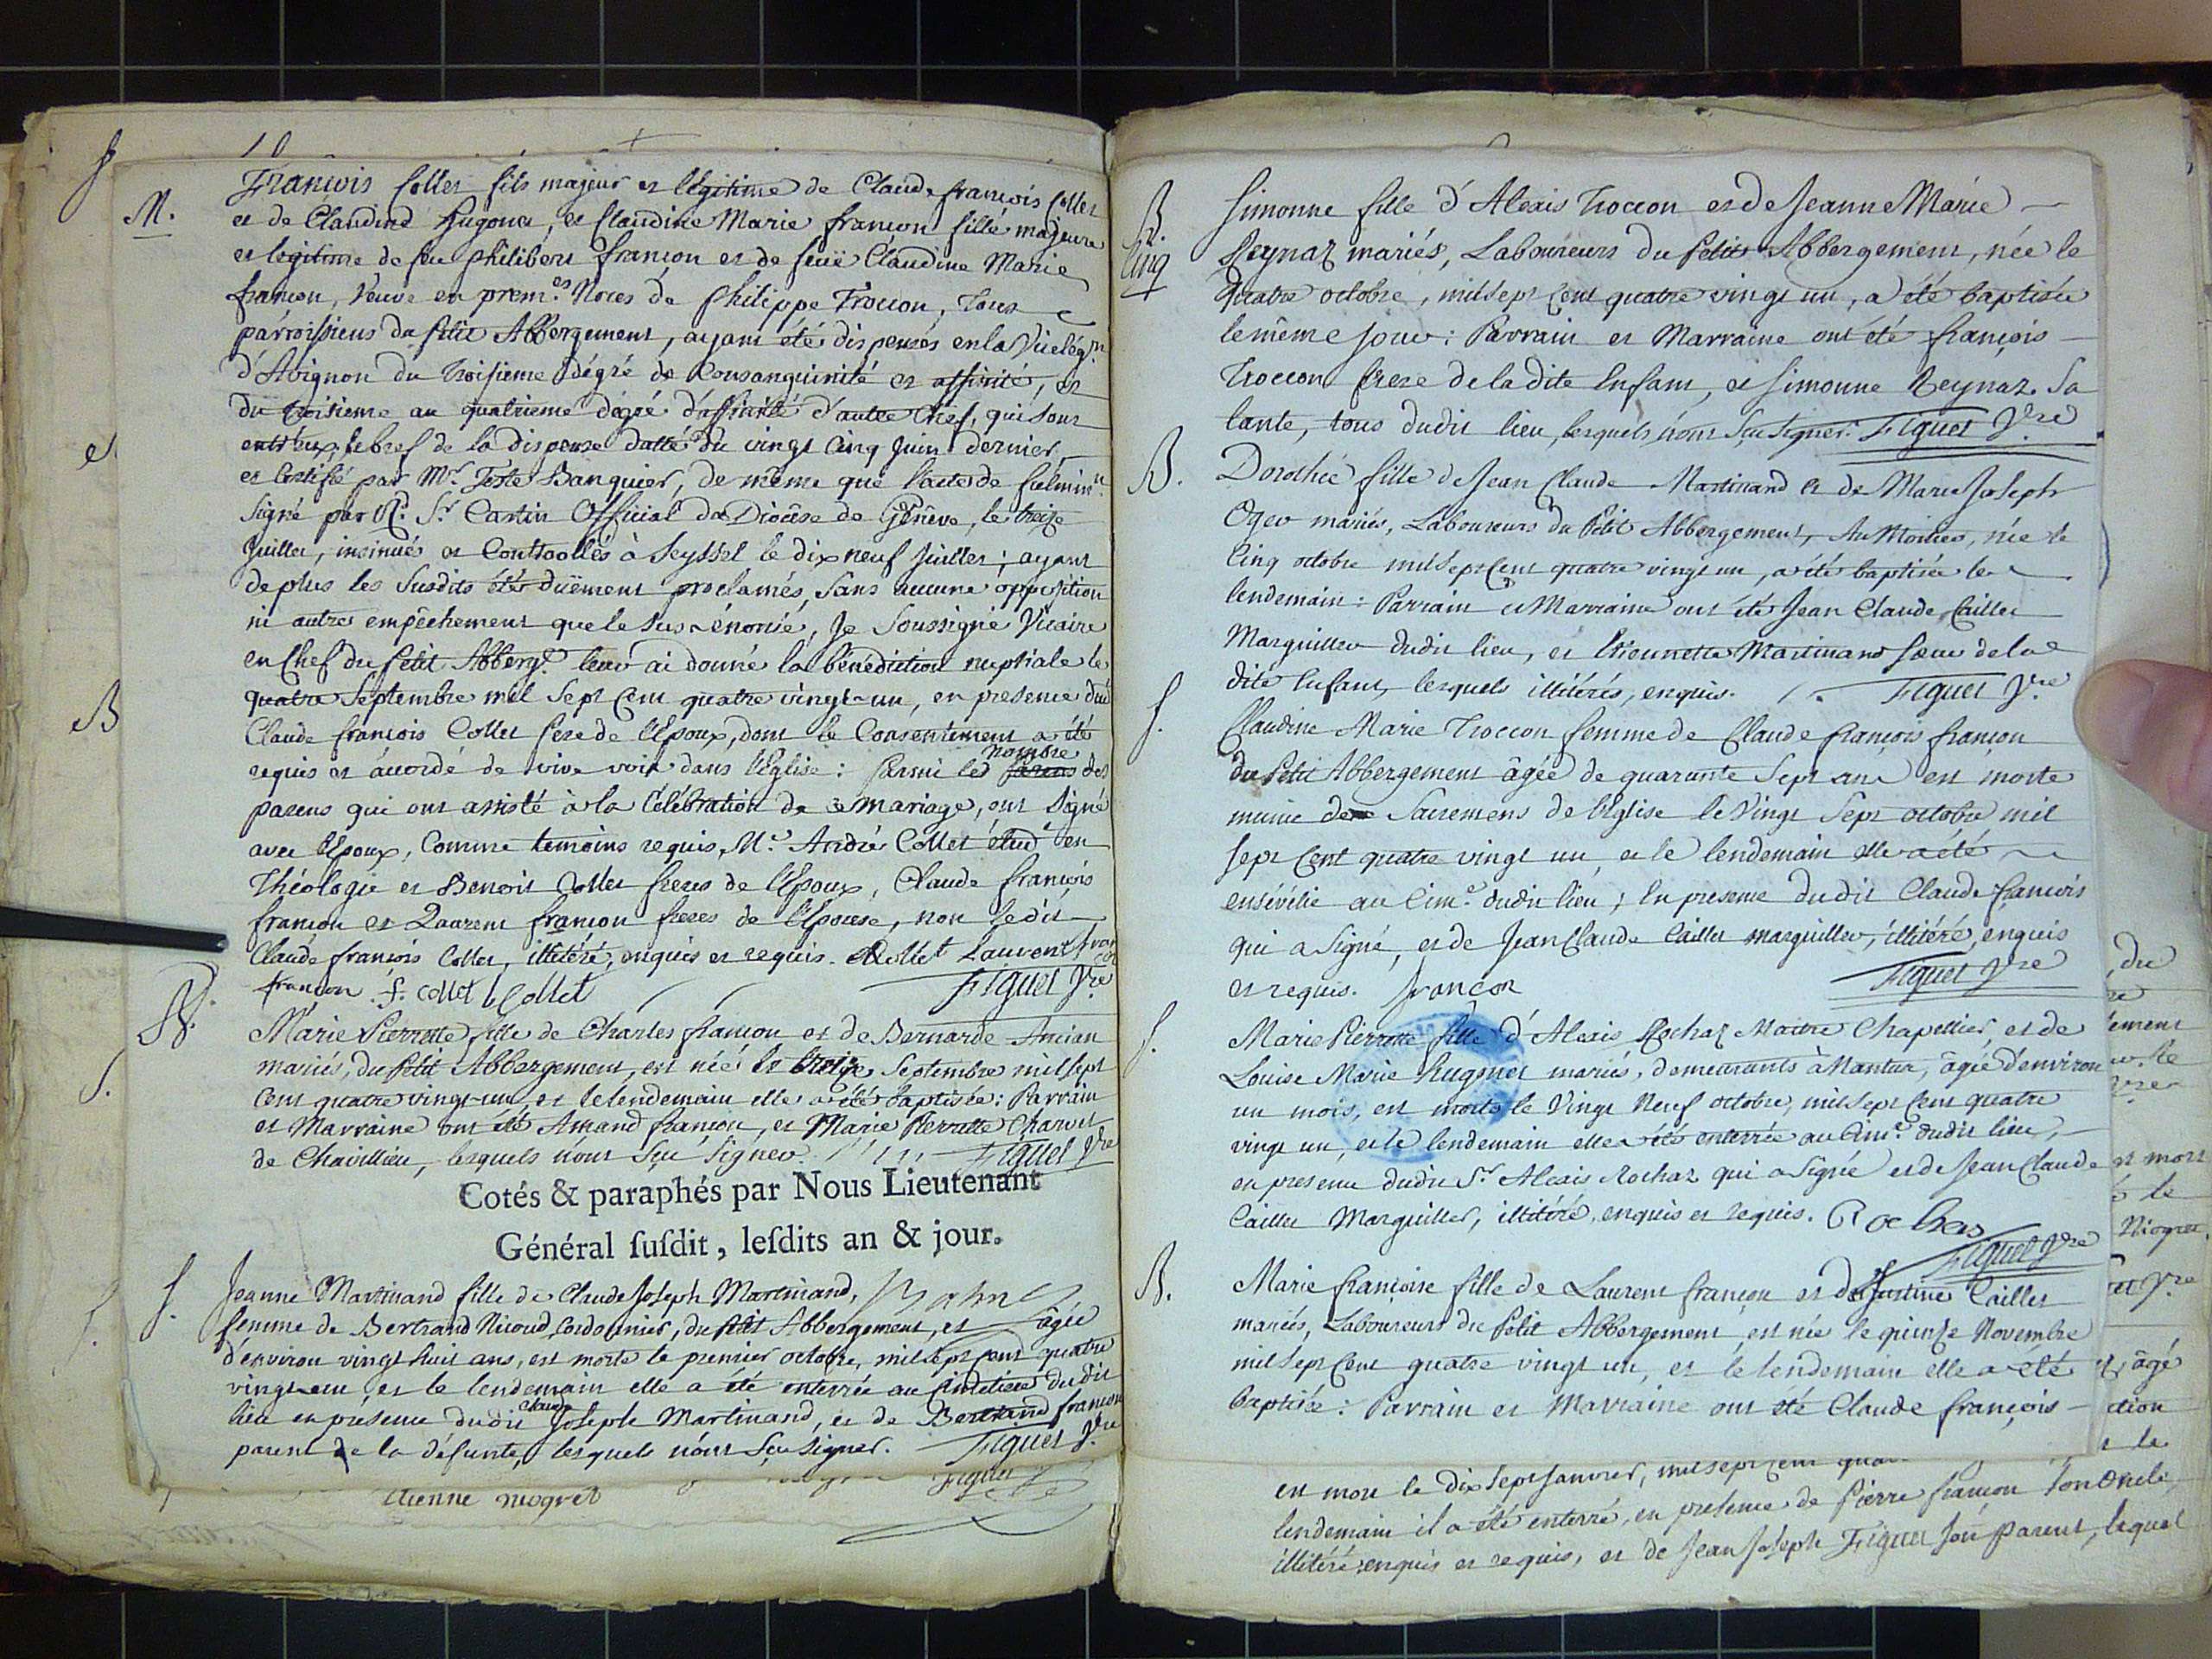 M.
François Collet fils majeur et légitime de Claude françois Collet
et de Claudine Hugonet, et Claudine Marie françon fille majeure
et legitime de feu philibert françon et de feuë Claudine Marie
françon, Veuve en prem.es Noces de philippe Troccon, Tous
parroissiens du petit Abbergement, ayant été dispensés en la Vicelég.on
d'Avignon du troisieme dégré de Consanguinité et affinité, et
du troisieme au quatrieme dégré d'affinité d'autre Chef, qui sont
entr'eux, le bref de la dispense datté du vingt Cinq Juin dernier
et Certifié par Mr. Teste Banquier, de même que l'acte de fulmin.on
Signé par Rd. Sr. Castin Official du Diocèse de Genêve, le treize
Juillet, insinués et Controollés à Seyssel le dix neuf Juillet; ayant
de plus les Susdits été duëment proclamés, Sans aucune opposition
ni autre empêchement que le Sus-énoncé, Je Soussigné Vicaire
en Chef du petit Abberg.t leur ai donné la bénédiction nuptiale le
quatre Septembre mil Sept Cent quatre vingt-un, en presence dud
Claude françois Collet Pere de l'Epoux, dont le Consentement a été
requis et accordé de vive voix dans l'Eglise: parmi les nombre des
parens qui ont assisté à la Célébration de ce mariage, ont Signé
avec l'Epoux, Comme temoins requis, Mr. André Collet étud.t en
Théologie et Benoit Collet freres de l'Epoux, Claude françois
françon et Laurent françon freres de l'Epouse, non ledit
Claude françois Collet, illitéré, enquis et requis. Collet Laurent françon
françon f. collet b Collet Figuet Vre
B.
Marie Pierrette fille de Charles françon et de Bernarde Ancian
mariés, du Petit Abbergement, est née le treize Septembre mil Sept
Cent quatre vingt-un et le lendemain elle a été baptisée: Parrain
et Marraine ont été Amand françon, et Marie Pierrette Charvet
de Chavillieu, lesquels n'ont Sçu Signer. Figuet Vre
Cotés & paraphés par Nous Lieutenant
Général ſuſdit, leſdits an & jour.
S.
Jeanne Martinand fille de Claude Joseph Martinand,
femme de Bertrand Nicoud, Cordonnier, du petit Abbergement, et âgée
d'environ vingt huit ans, est morte le premier octobre, mil sept cent quatre
vingt-un, et le lendemain elle a été enterrée au Cimetiere dudit
lieu en présence dudit Claude Joseph Martinand, et de Bertrand françon
parent de la défunte, lesquels n'ont Sçu Signer. Figuet Vre
Etienne niogret Figuet
B.
Cinq
Simonne fille d'Alexis Troccon et de Jeanne Marie
Reynaz mariés, Laboureurs du Petit Abbergement, née le
quatre octobre, mil sept Cent quatre vingt un, a été baptisée
le même jour: Parrain et Marraine ont été françois
Troccon frere de la dite Enfant, et Simonne Reynaz Sa
tante, tous dudit lieu, lesquels n'ont Sçu Signer. Figuet Vre
B.
Dorothée fille de Jean Claude Martinand et de Marie Joseph
Oger mariés, Laboureurs du Petit Abbergement, Au Moines, née le
Cinq octobre mil Sept Cent quatre vingt un, a été baptisée le
lendemain: Parrain et Marraine ont été Jean Claude Caillet
Marguiller dudit lieu, et Etiennette Martinand Sœur de la
dite Enfant, lesquels illitérés, enquis. Figuet Vre
S.
Claudine Marie Troccon femme de Claude françois françon
du Petit Abbergement âgée de quarante Sept ans est morte
munie des Sacremens de l'Eglise le Vingt Sept octobre mil
Sept Cent quatre vingt un, et le lendemain elle a été
ensévélie au Cim.e dudit lieu; En presence dudit Claude françois
qui a Signé, et de Jean Claude Caillet marguiller, illitéré, enquis
et requis. francon Figuet Vre
S.
Marie Pierrette fille d'Alexis Rochaz Maitre Chapellier, et de
Louise Marie Hugonet mariés, demeurants à Nantua, âgée d'environ
un mois, est morte le Vingt Neuf octobre, mil sept Cent quatre
vingt un, et le lendemain elle a été enterrée au Cim.e dudit lieu,
en presence dudit Sr. Alexis Rochaz qui a Signé et de Jean Claude
Caillet Marguiller, illitéré, enquis et requis. Rochas
Figuet Vre
B.
Marie françoise fille de Laurent françon et de Justine Caillet
mariés, Laboureurs du Petit Abbergement est née le quinze Novembre
mil Sept Cent quatre vingt un, et le lendemain elle a été
baptisée: Parrain et Marraine ont été Claude françois
est mort le dix Sept Janvier, mil sept cent
lendemain il a été enterré, en presence de Pierre françon Son Oncle,
illitéré, enquis et requis, et de Jean Joseph Figuet Son parent, lequel